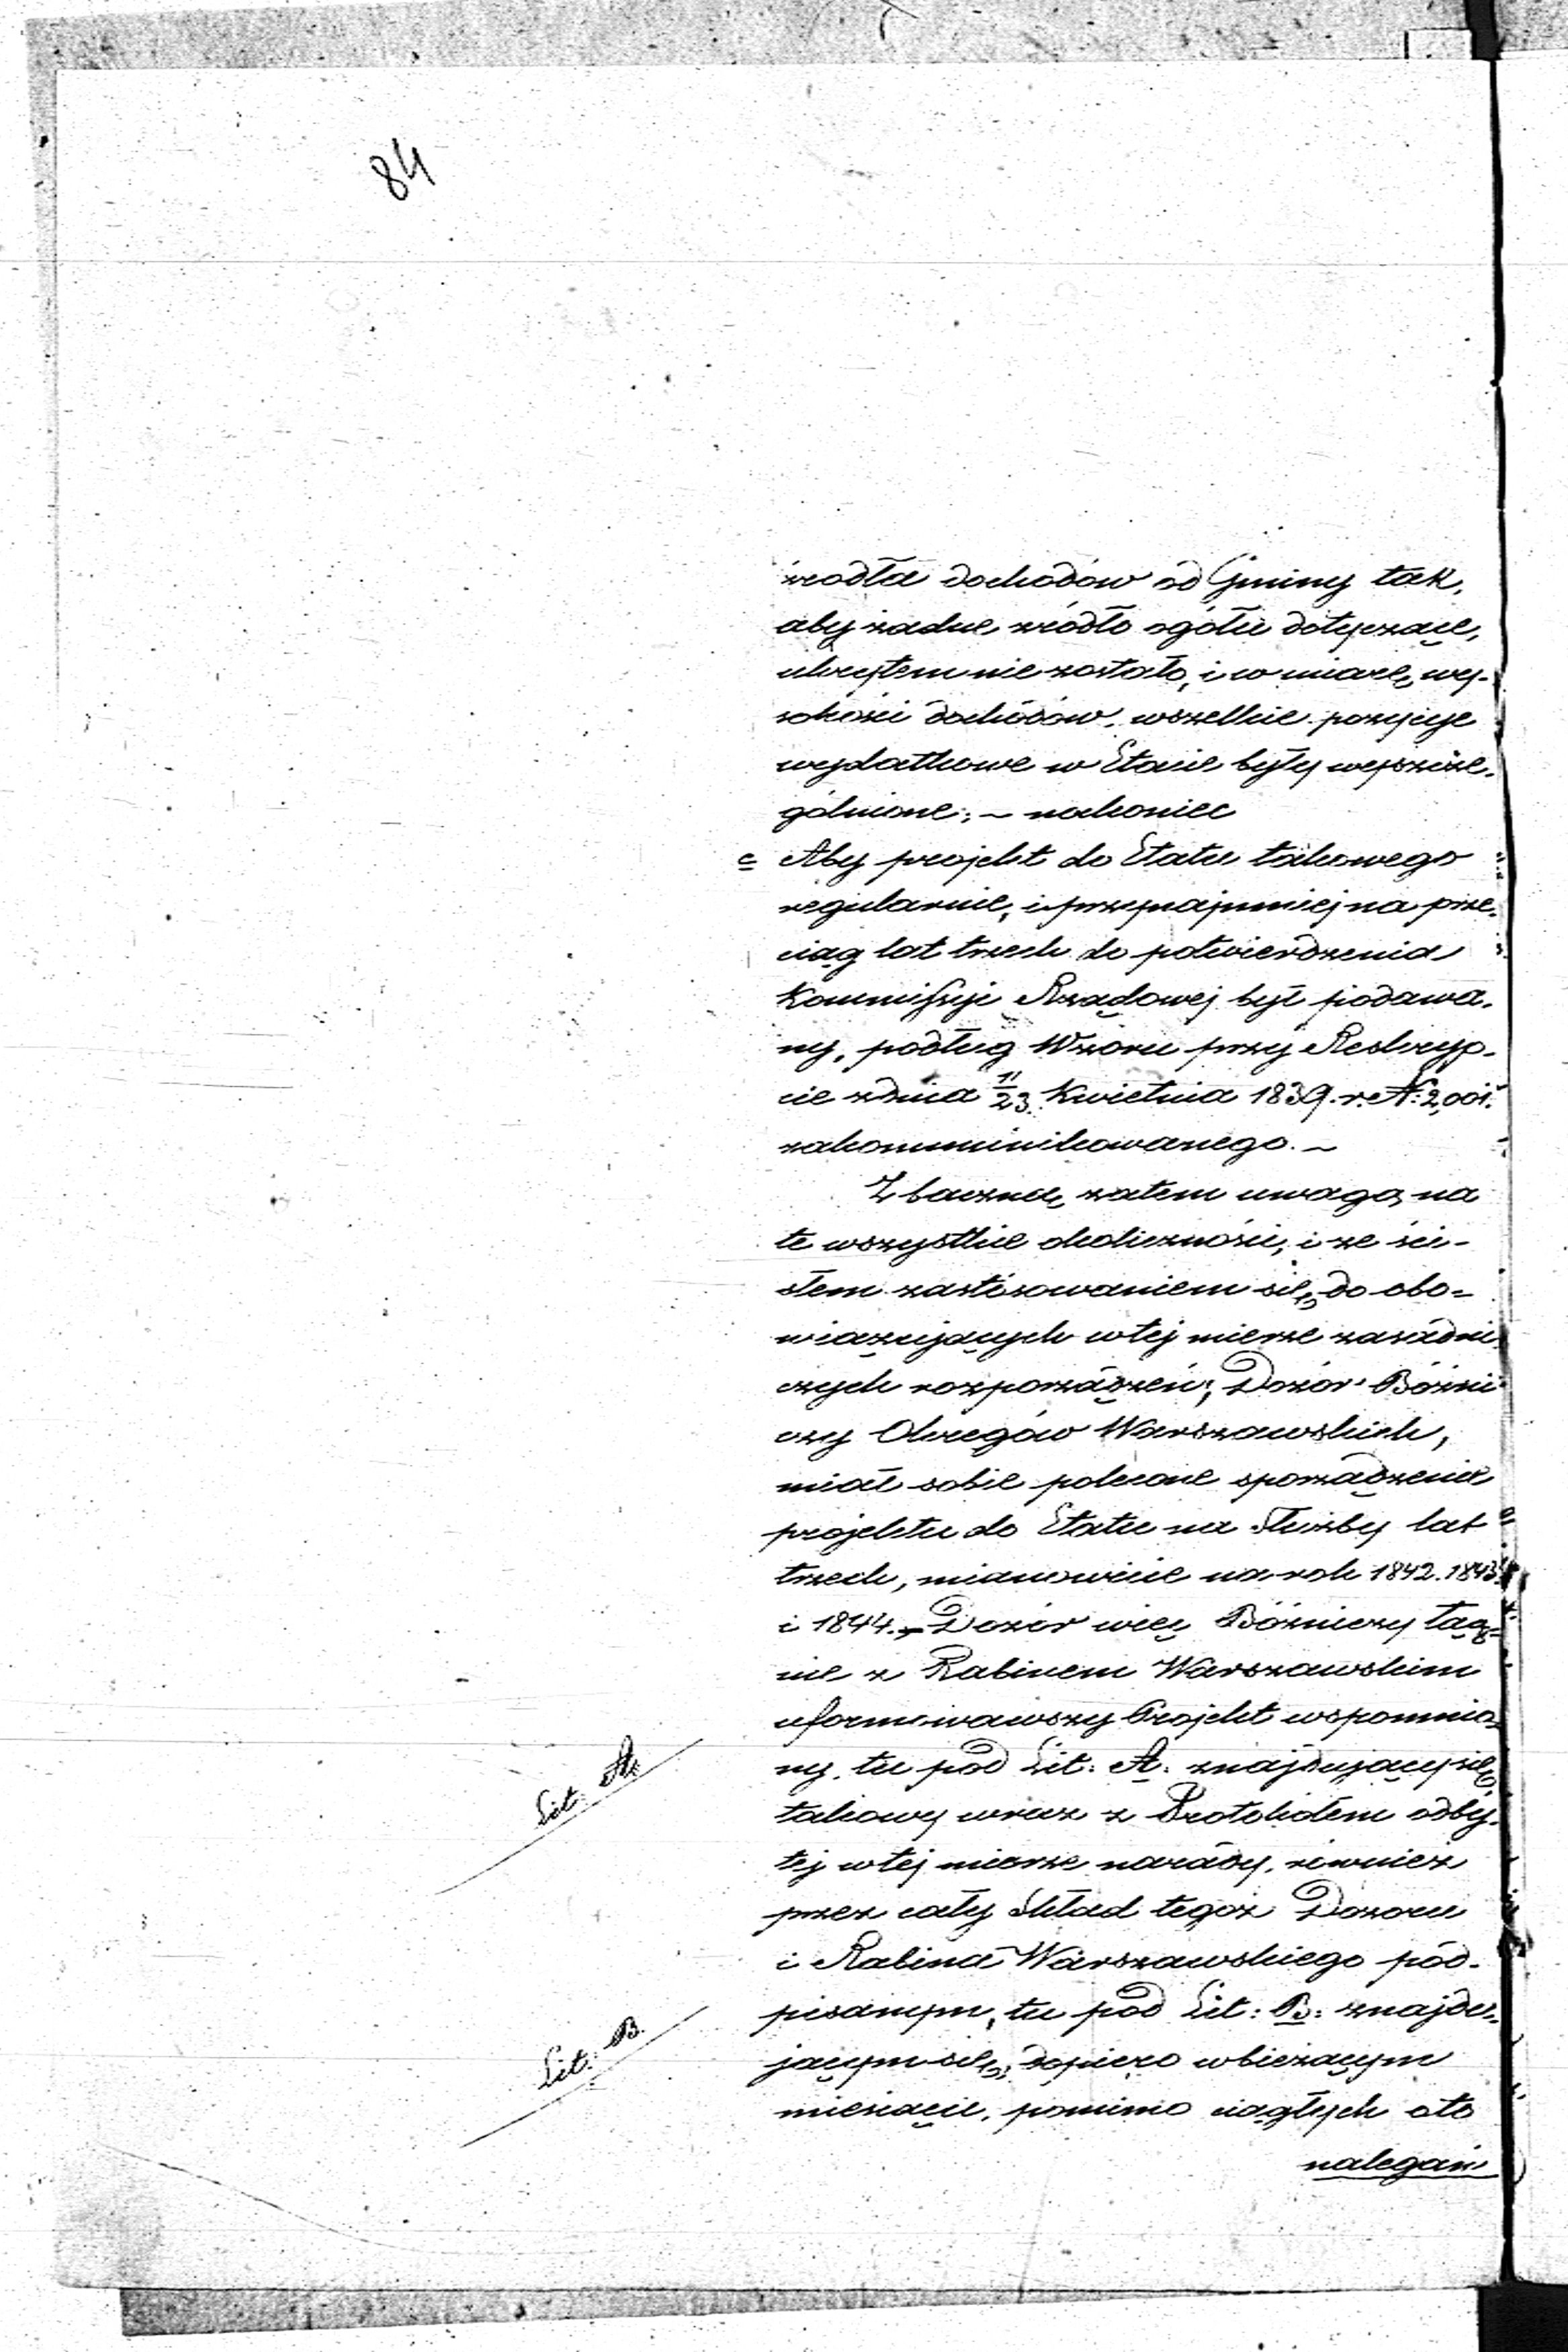 84
źrodła dochodów od Gminy tak,
aby żadne źródło ogółu dotyczące,
ukrytem nie zostało, i w miarę, wy-
sokości dochodów, wszelkie pozycye
wydatkowe w Etacie były wyszcze-
gólnione; ~ nakoniec
c Aby projekt do Etatu takowego
regularnie, i przynajmniej na prze-
ciąg lat trzech do potwierdzenia
Kommissyi Rządowej był podawa-
ny, podług Wzoru przy Reskryp-
cie z dnia 11/23 Kwietnia 1839. r. N: 2,001.
zakommunikowanego. ~
Z baczną, zatem uwagą, na
te wszystkie okoliczności, i ze ści-
słem zastósowaniem się, do obo=
wiązujących w tej mierze zasadni-
czych rozporządzeń; Dozór Bóżni-
czy Okręgów Warszawskich,
miał sobie polecone sporządzenie
projektu do Etatu na Służby lat
trzech, mianowicie na rok 1842. 1843.
i 1844. – Dozór więc Bóżniczy łącz=
nie z Rabinem Warszawskim
uformowawszy Projekt wspomnio-
ny, tu pod Lit: A: znajdujący się,
Lit. A.
takowy wraz z Protokółem odby-
tej w tej mierze narady, również
przez cały Skład tegoż Dozoru
i Rabina Warszawskiego pod-
pisanym, tu pod Lit: B: znajdu-
Lit. B.
jącym się, dopiero w bieżącym
miesiącu, pomimo ciągłych o to
nalegań